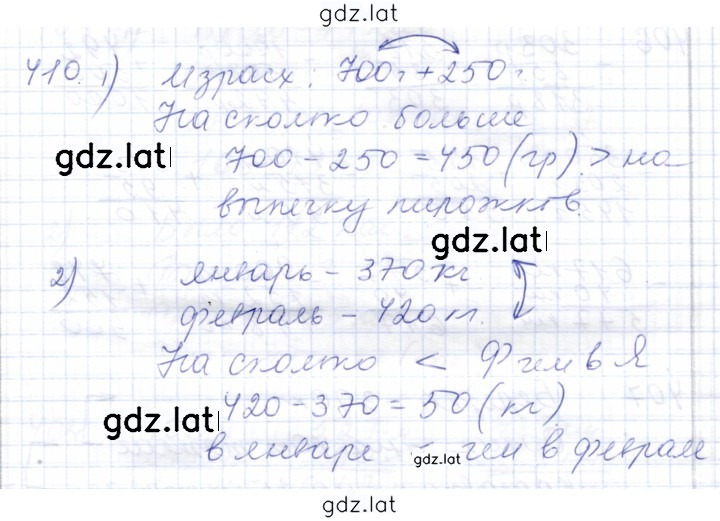 gdz.lat
410. 1) Израсх: 700г + 250г
На сколько больше
gdz.lat
700 - 250 = 450 (гр) > на
выпечку пирожков.
gdz.lat
2) январь - 370 кг
февраль - 420 кг.
На сколько < Ф чем в Я.
gdz.lat
420 - 370 = 50 (кг)
в январе - чем в феврале
gdz.lat
gdz.lat